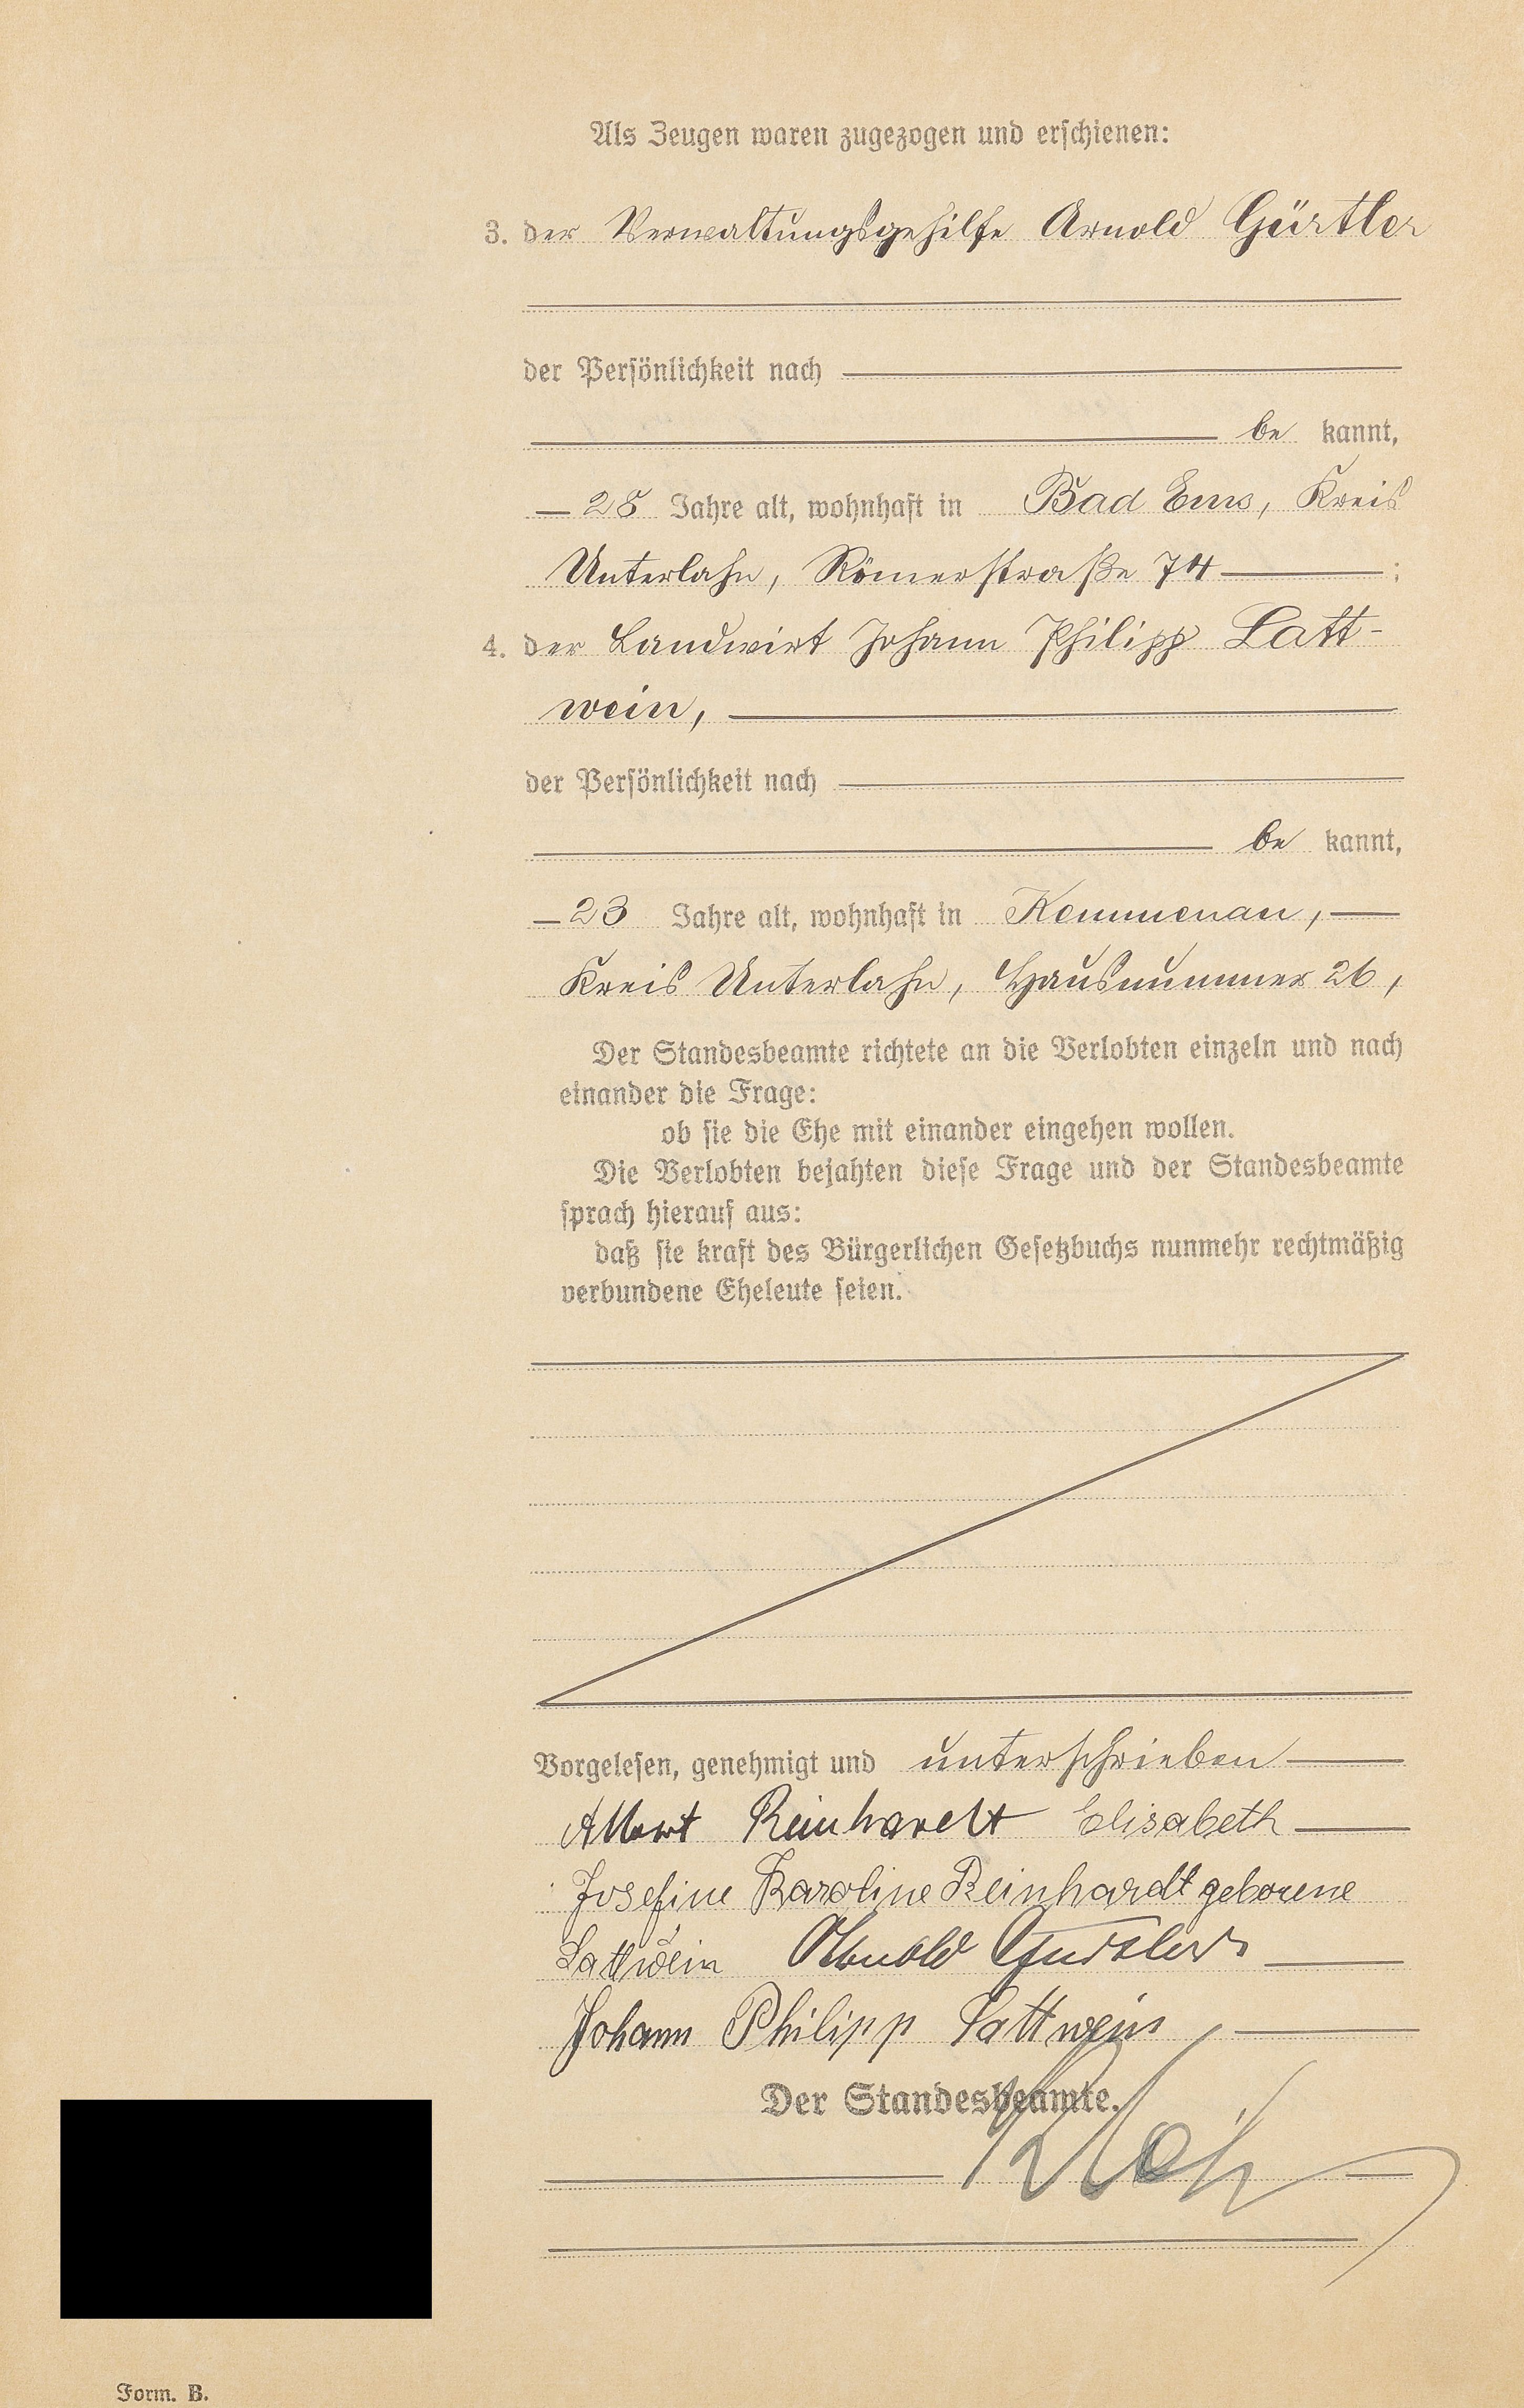 Als Zeugen waren zugezogen und erschienen:
3. der Verwaltungsgehilfe Arnold Gürtler
der Persönlichkeit nach
be kannt,
28 Jahre alt, wohnhaft in Bad Ems, Kreis
Unterlahn, Römerstraße 74 ;
4. der Landwirt Johann Philipp Latt-
wein,
der Persönlichkeit nach
be kannt,
23 Jahre alt, wohnhaft in Kemmenau,
Kreis Unterlahn, Hausnummer 26,
Der Standesbeamte richtete an die Verlobten einzeln und nach
einander die Frage:
ob sie die Ehe mit einander eingehen wollen.
Die Verlobten bejahten diese Frage und der Standesbeamte
sprach hierauf aus:
daß sie kraft des Bürgerlichen Gesetzbuchs nunmehr rechtmäßig
verbundene Eheleute seien.
Vorgelesen, genehmigt und unterschrieben
Albert Reinhardt Elisabeth
Josefine Karoline Reinhardt geborene
Lattwein Arnold Gürtler
Johann Philipp Lattwein
Der Standesbeamte.
Form. B.